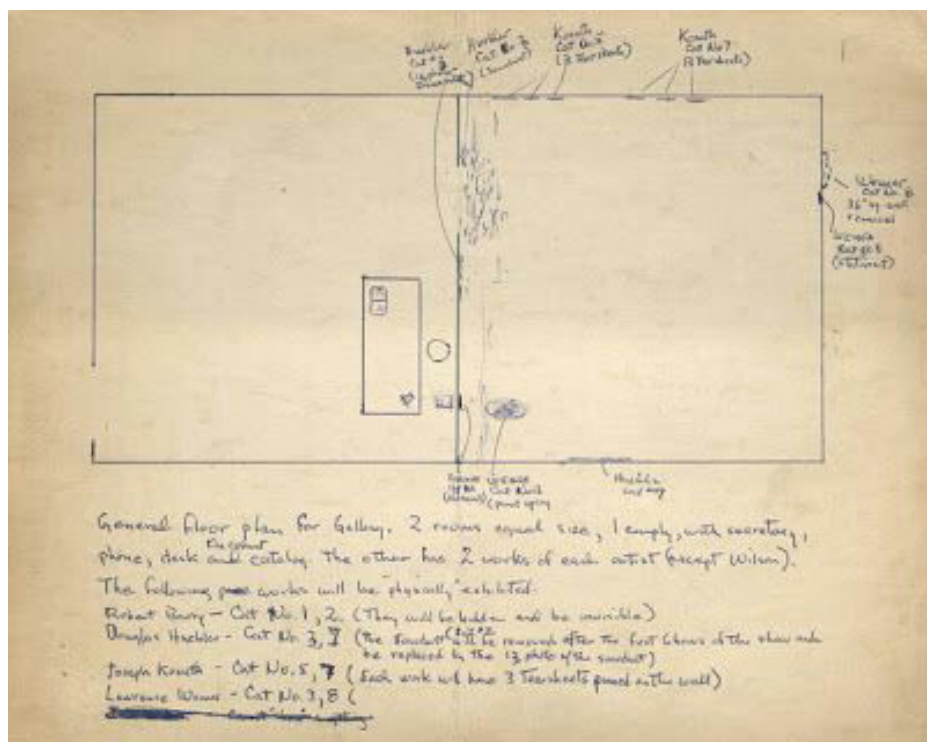 Huebler
Cat No.
Huebler
Cat No. 2
(Sawdust)
Kosuth
Cat No.
(3 Tearsheets)
Kosuth
Cat No 7
(3 Tearsheets)
Weiner
Cat No. 8
36" sq. wall
removal
Weiner
Cat No 8
(statement)
Weiner
(statement)
Weiner
Cat No.
(paint spray
Huebler
map
General floor plan for Gallery. 2 rooms equal size, 1 empty, with secretary,
phone, desk and catalog. The other has 2 works of each artist (except Wilson).
The following works will be "physically" exhibited.
Robert Barry - Cat No. 1, 2. (They will be hidden and be invisible)
Douglas Huebler - Cat No. 3, (the sawdust will be removed after the first 6 hours of the show and
be replaced by the photo of the sawdust)
Joseph Kosuth - Cat No. 5, 7 (Each work will have 3 Tearsheets pinned on the wall)
Lawrence Weiner - Cat No. 3, 8 (